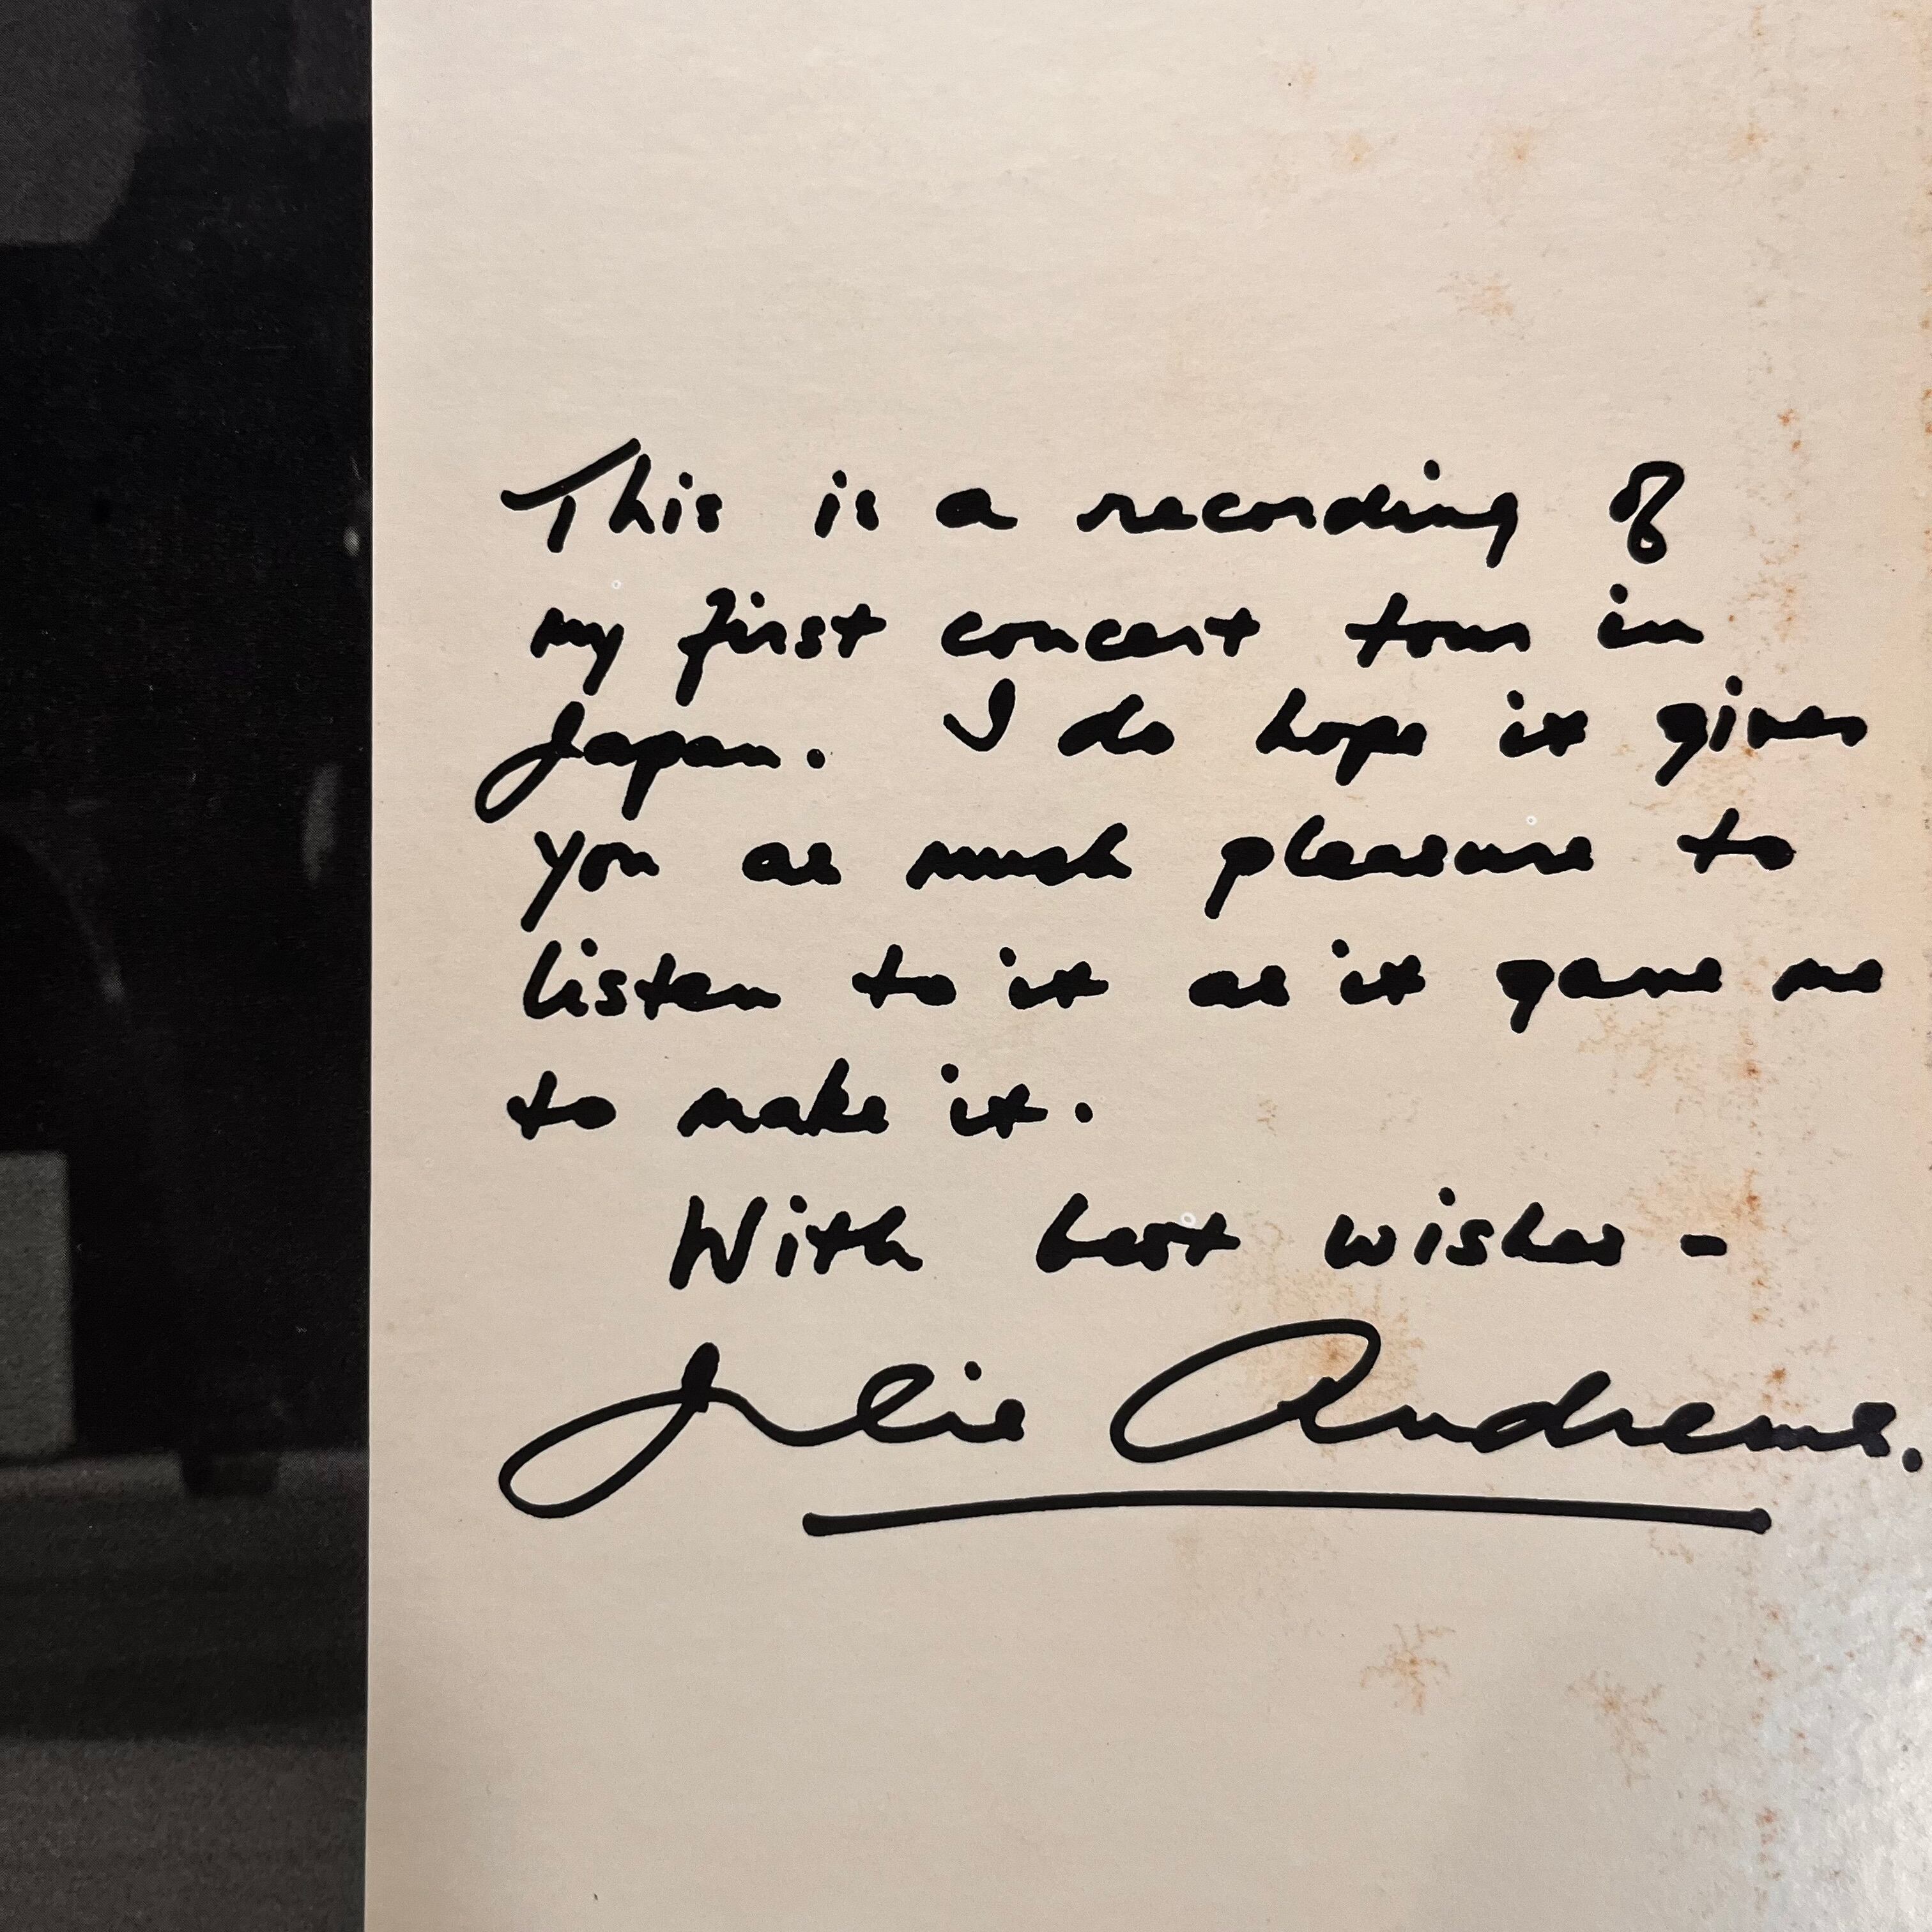 This is a recording of
my first concert tour in
Japan. I do hope it gives
you as much pleasure to
listen to it as it gave me
to make it.
With best wishes -
Julie Andrews.